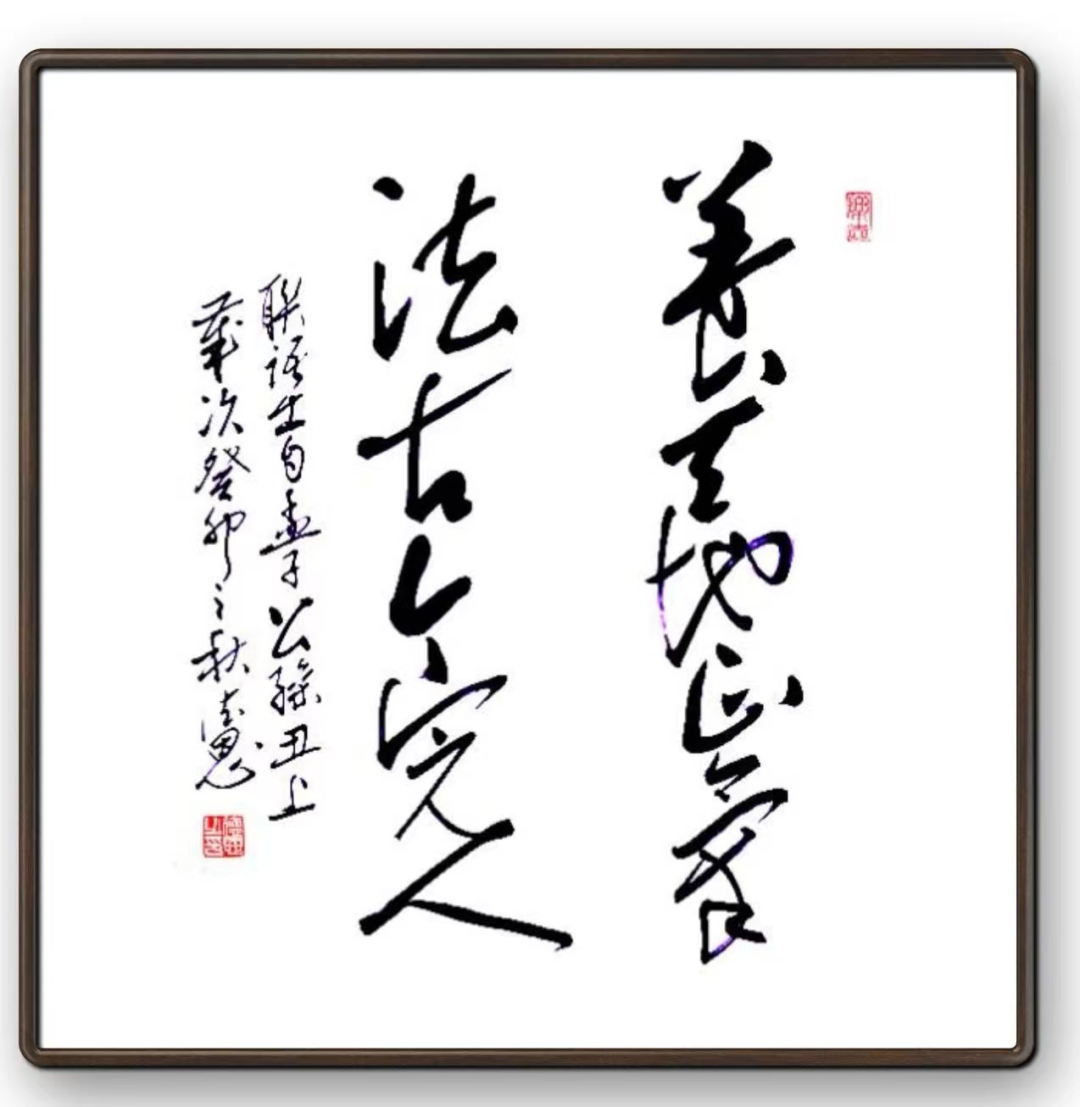 养天地正气
法古今完人
联语出自孟子公孙丑上
岁次癸卯之秋志思